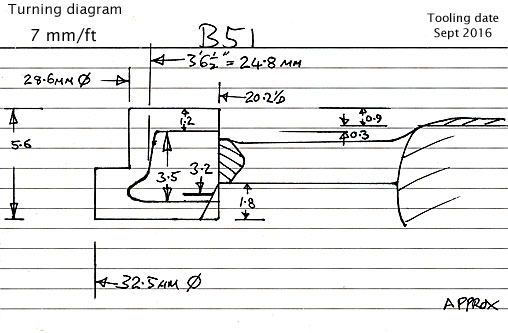 Turning diagram
7 mm/ft
B51
Tooling date
Sept 2016
3'6½" = 24.8 MM
28.6MM Ø
1.2
0.9
0.3
5.6
3.5
3.2
1.8
32.5MM Ø
APPROX